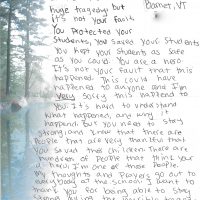 huge tragedy but Barnet, VT
it's not your fault.
You Protected your
Students, you saved your Students
You kept your Students as safe
as you could. You are a hero.
It's not your fault that this
happened. This could have
happened to anyone and I'm
very sorry this happened to
you. It's hard to understand
what happened, and why it
happend. But you need to stay
strong, and know that there are
People that are very thankful that
you saved those children. There are
hundreds of People that think your
a hero. I'm one of those People.
My thoughts and Prayers go out to
everybody at the school. I want to
thank you for being able to stay